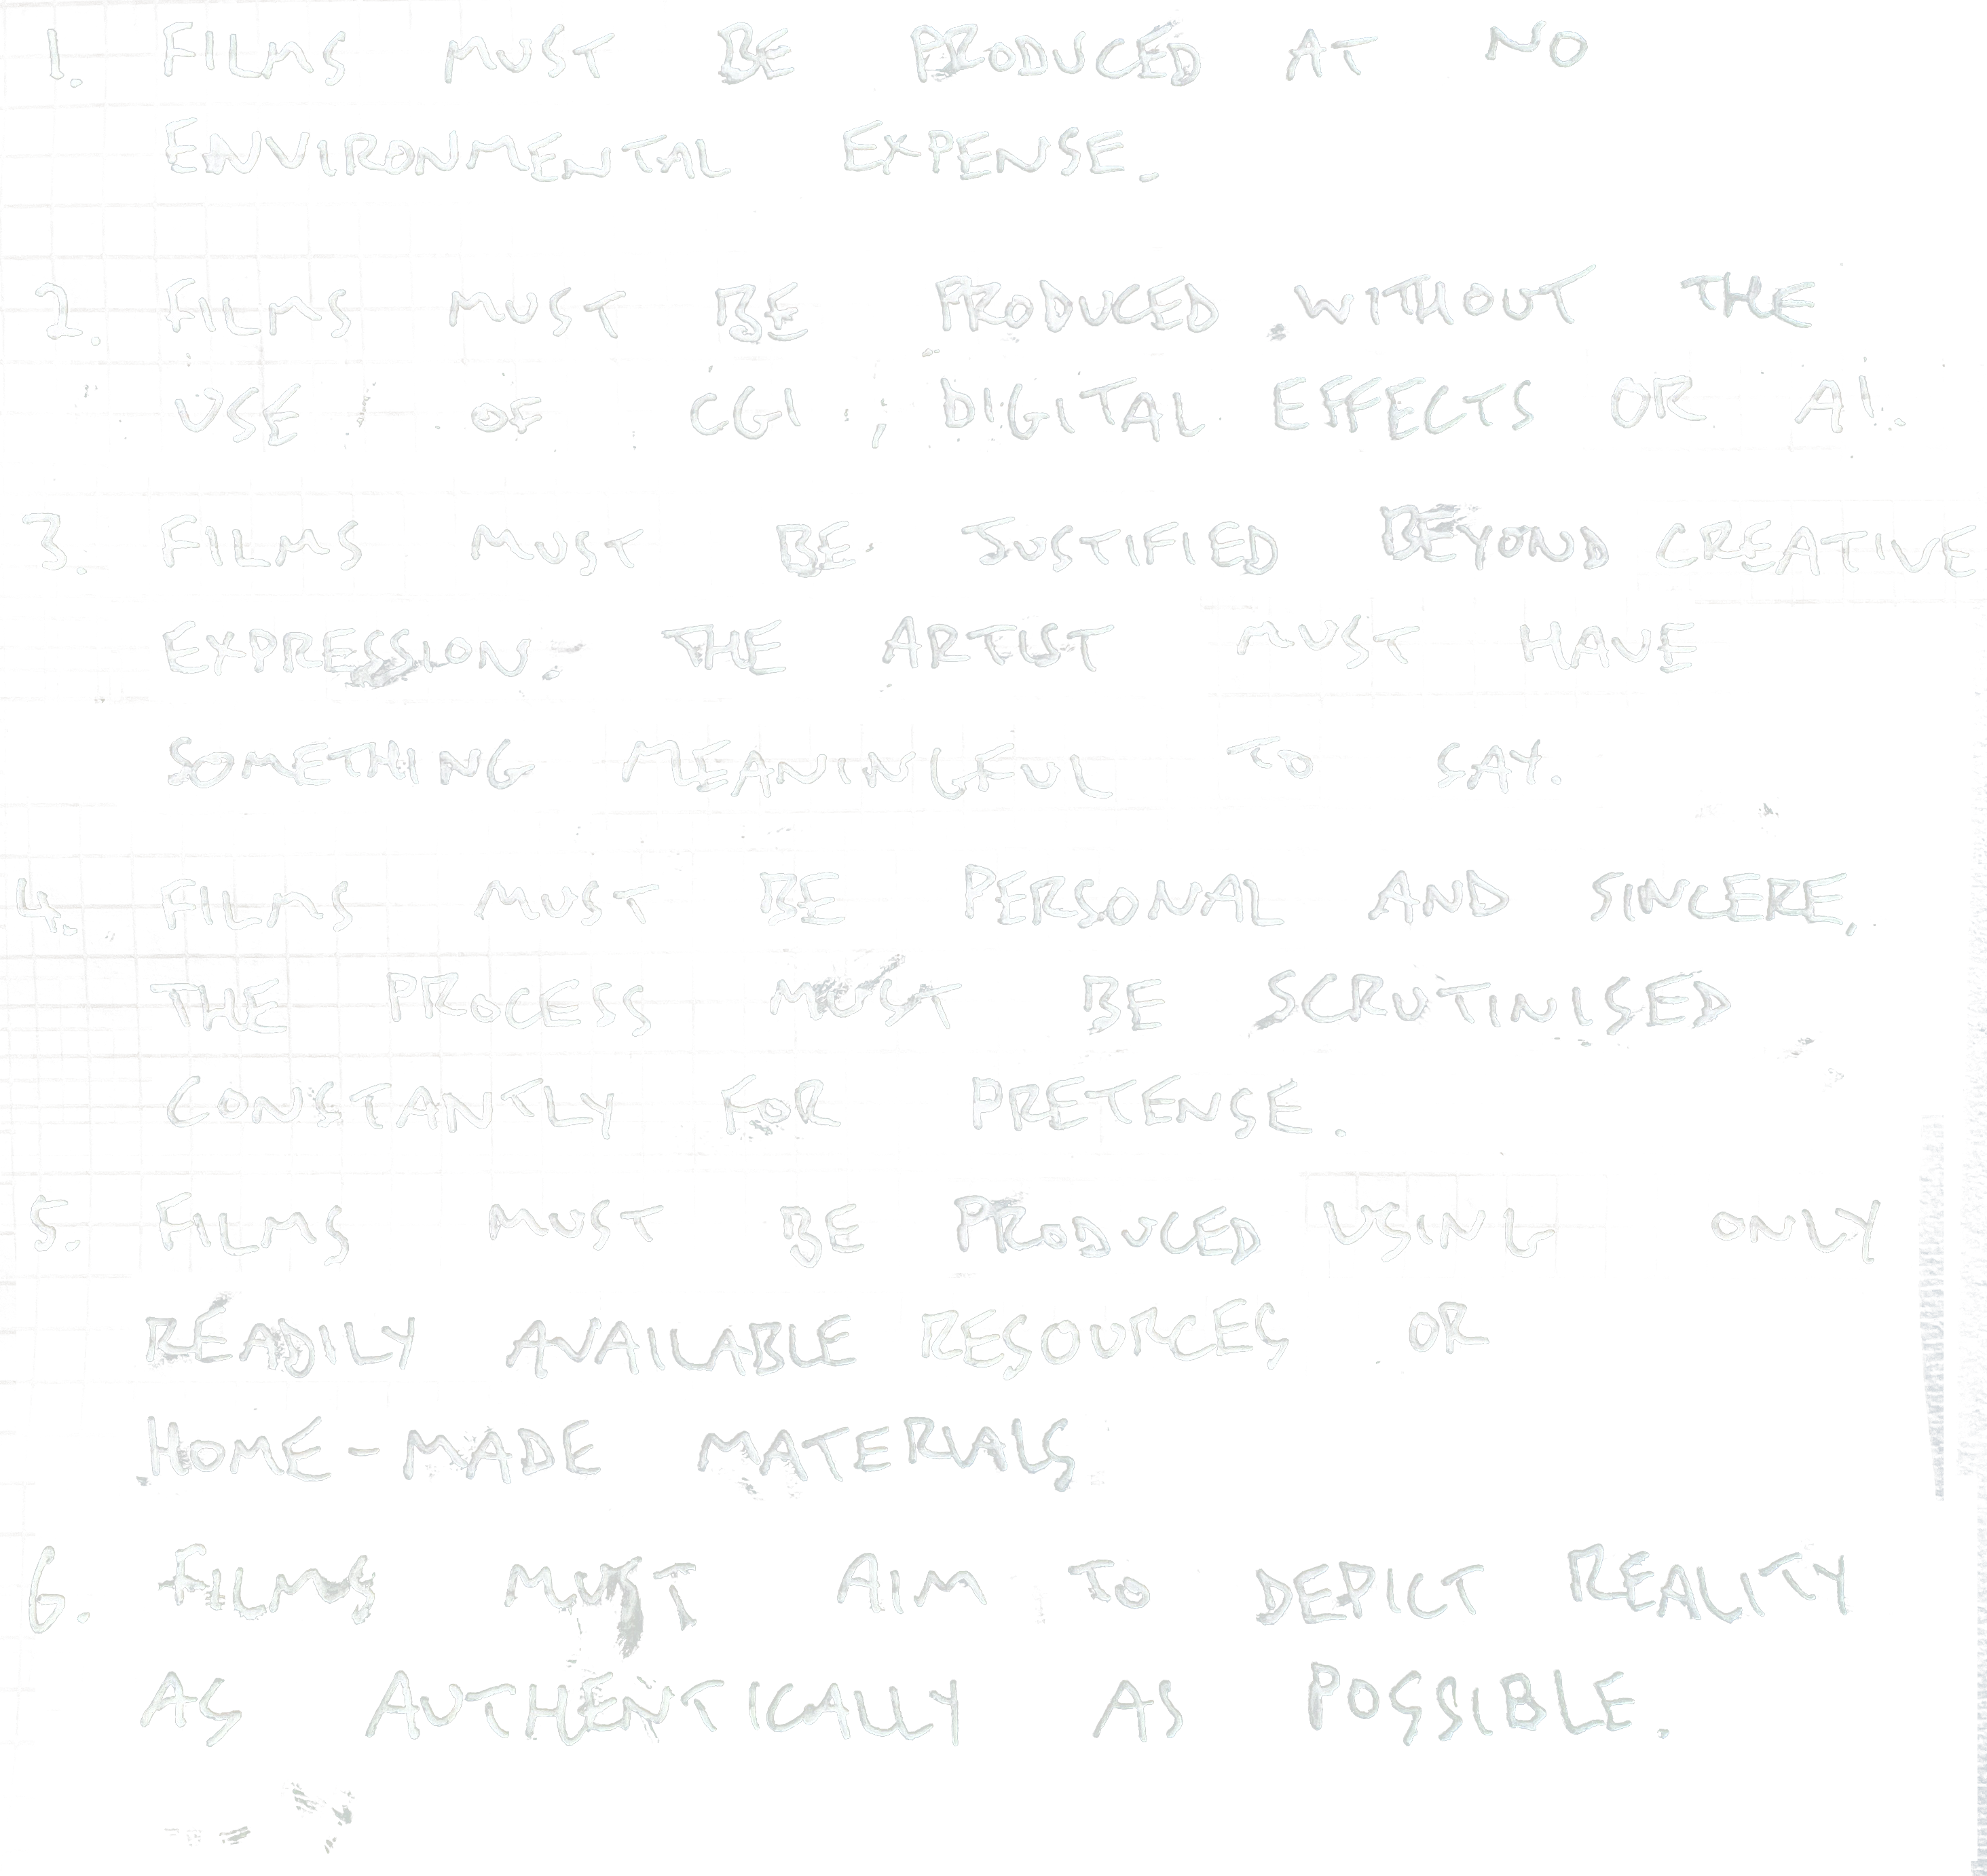 1. FILMS MUST BE PRODUCED AT NO
ENVIRONMENTAL EXPENSE.
2. FILMS MUST BE PRODUCED WITHOUT THE
USE OF CGI, DIGITAL EFFECTS OR AI.
3. FILMS MUST BE JUSTIFIED BEYOND CREATIVE
EXPRESSION: THE ARTIST MUST HAVE
SOMETHING MEANINGFUL TO SAY.
4. FILMS MUST BE PERSONAL AND SINCERE.
THE PROCESS MUST BE SCRUTINISED
CONSTANTLY FOR PRETENSE.
5. FILMS MUST BE PRODUCED USING ONLY
READILY AVAILABLE RESOURCES OR
HOME-MADE MATERIALS
6. FILMS MUST AIM TO DEPICT REALITY
AS AUTHENTICALLY AS POSSIBLE.